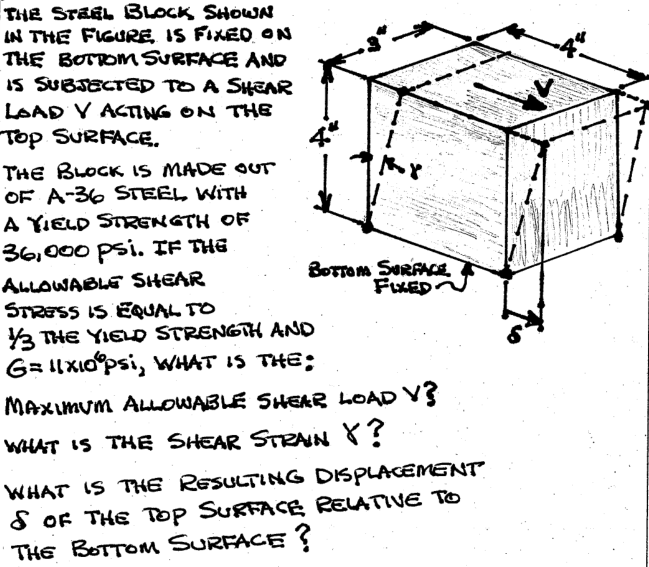 THE STEEL BLOCK SHOWN
IN THE FIGURE IS FIXED ON
THE BOTTOM SURFACE AND
IS SUBJECTED TO A SHEAR
LOAD V ACTING ON THE
TOP SURFACE.
THE BLOCK IS MADE OUT
OF A-36 STEEL WITH
A YIELD STRENGTH OF
36,000 psi. IF THE
ALLOWABLE SHEAR
STRESS IS EQUAL TO
1/3 THE YIELD STRENGTH AND
G = 11x10⁶psi, WHAT IS THE:
MAXIMUM ALLOWABLE SHEAR LOAD V?
WHAT IS THE SHEAR STRAIN γ?
WHAT IS THE RESULTING DISPLACEMENT
δ OF THE TOP SURFACE RELATIVE TO
THE BOTTOM SURFACE?
3"
4"
V
4"
γ
BOTTOM SURFACE
FIXED
δ